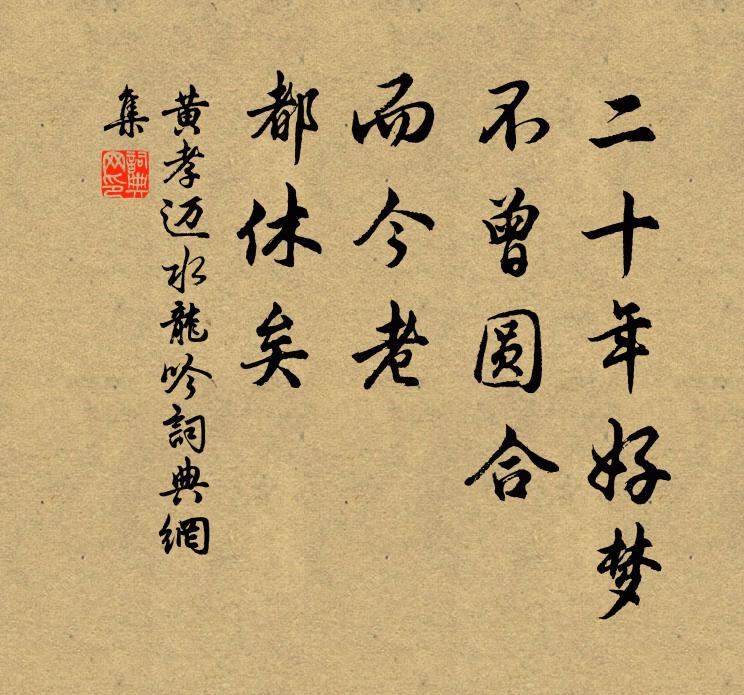 二十年好梦
不曾圆合
而今老
都休矣
黄孝迈水龍吟詞典網
集
詞典
网印